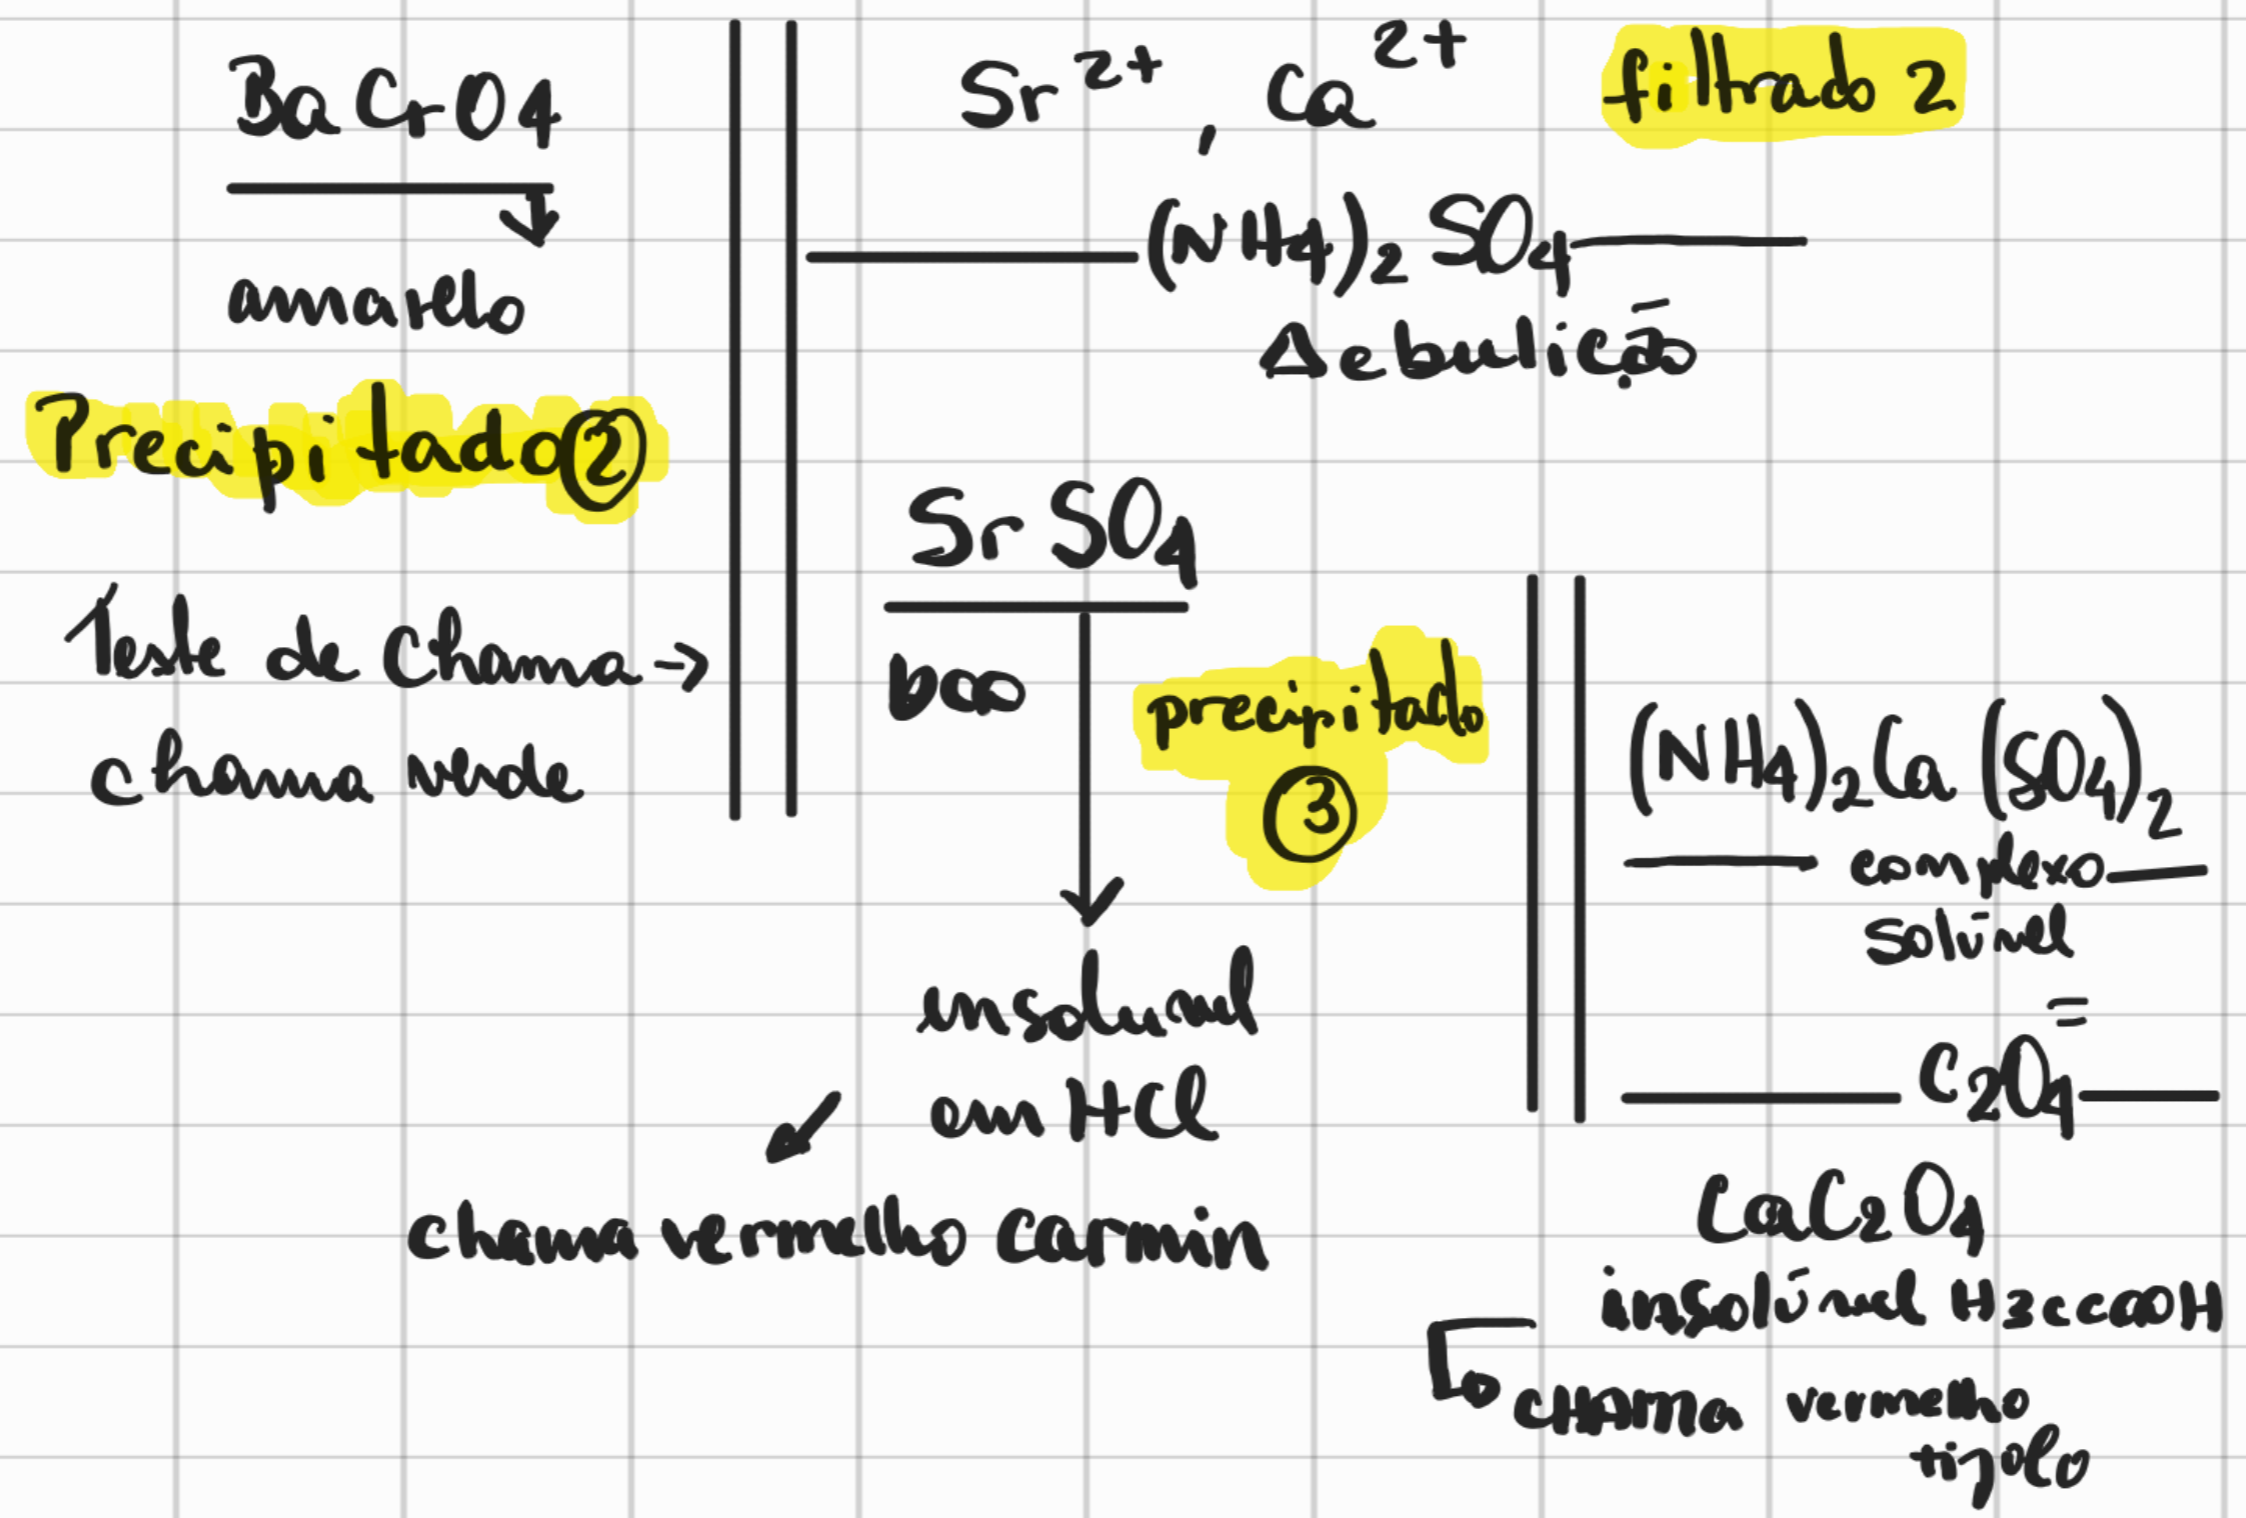 BaCrO4
amarelo
Precipitado ②
Teste de Chama →
chama verde
Sr²⁺, Ca²⁺ filtrado 2
(NH4)2 SO4
Δ ebulição
SrSO4
bco precipitado
③
insoluvel
em HCl
chama vermelho carmin
(NH4)2Ca(SO4)2
complexo
solúvel
C2O4=
CaC2O4
insolúvel H3CCOOH
CHAMA vermelho
tijolo